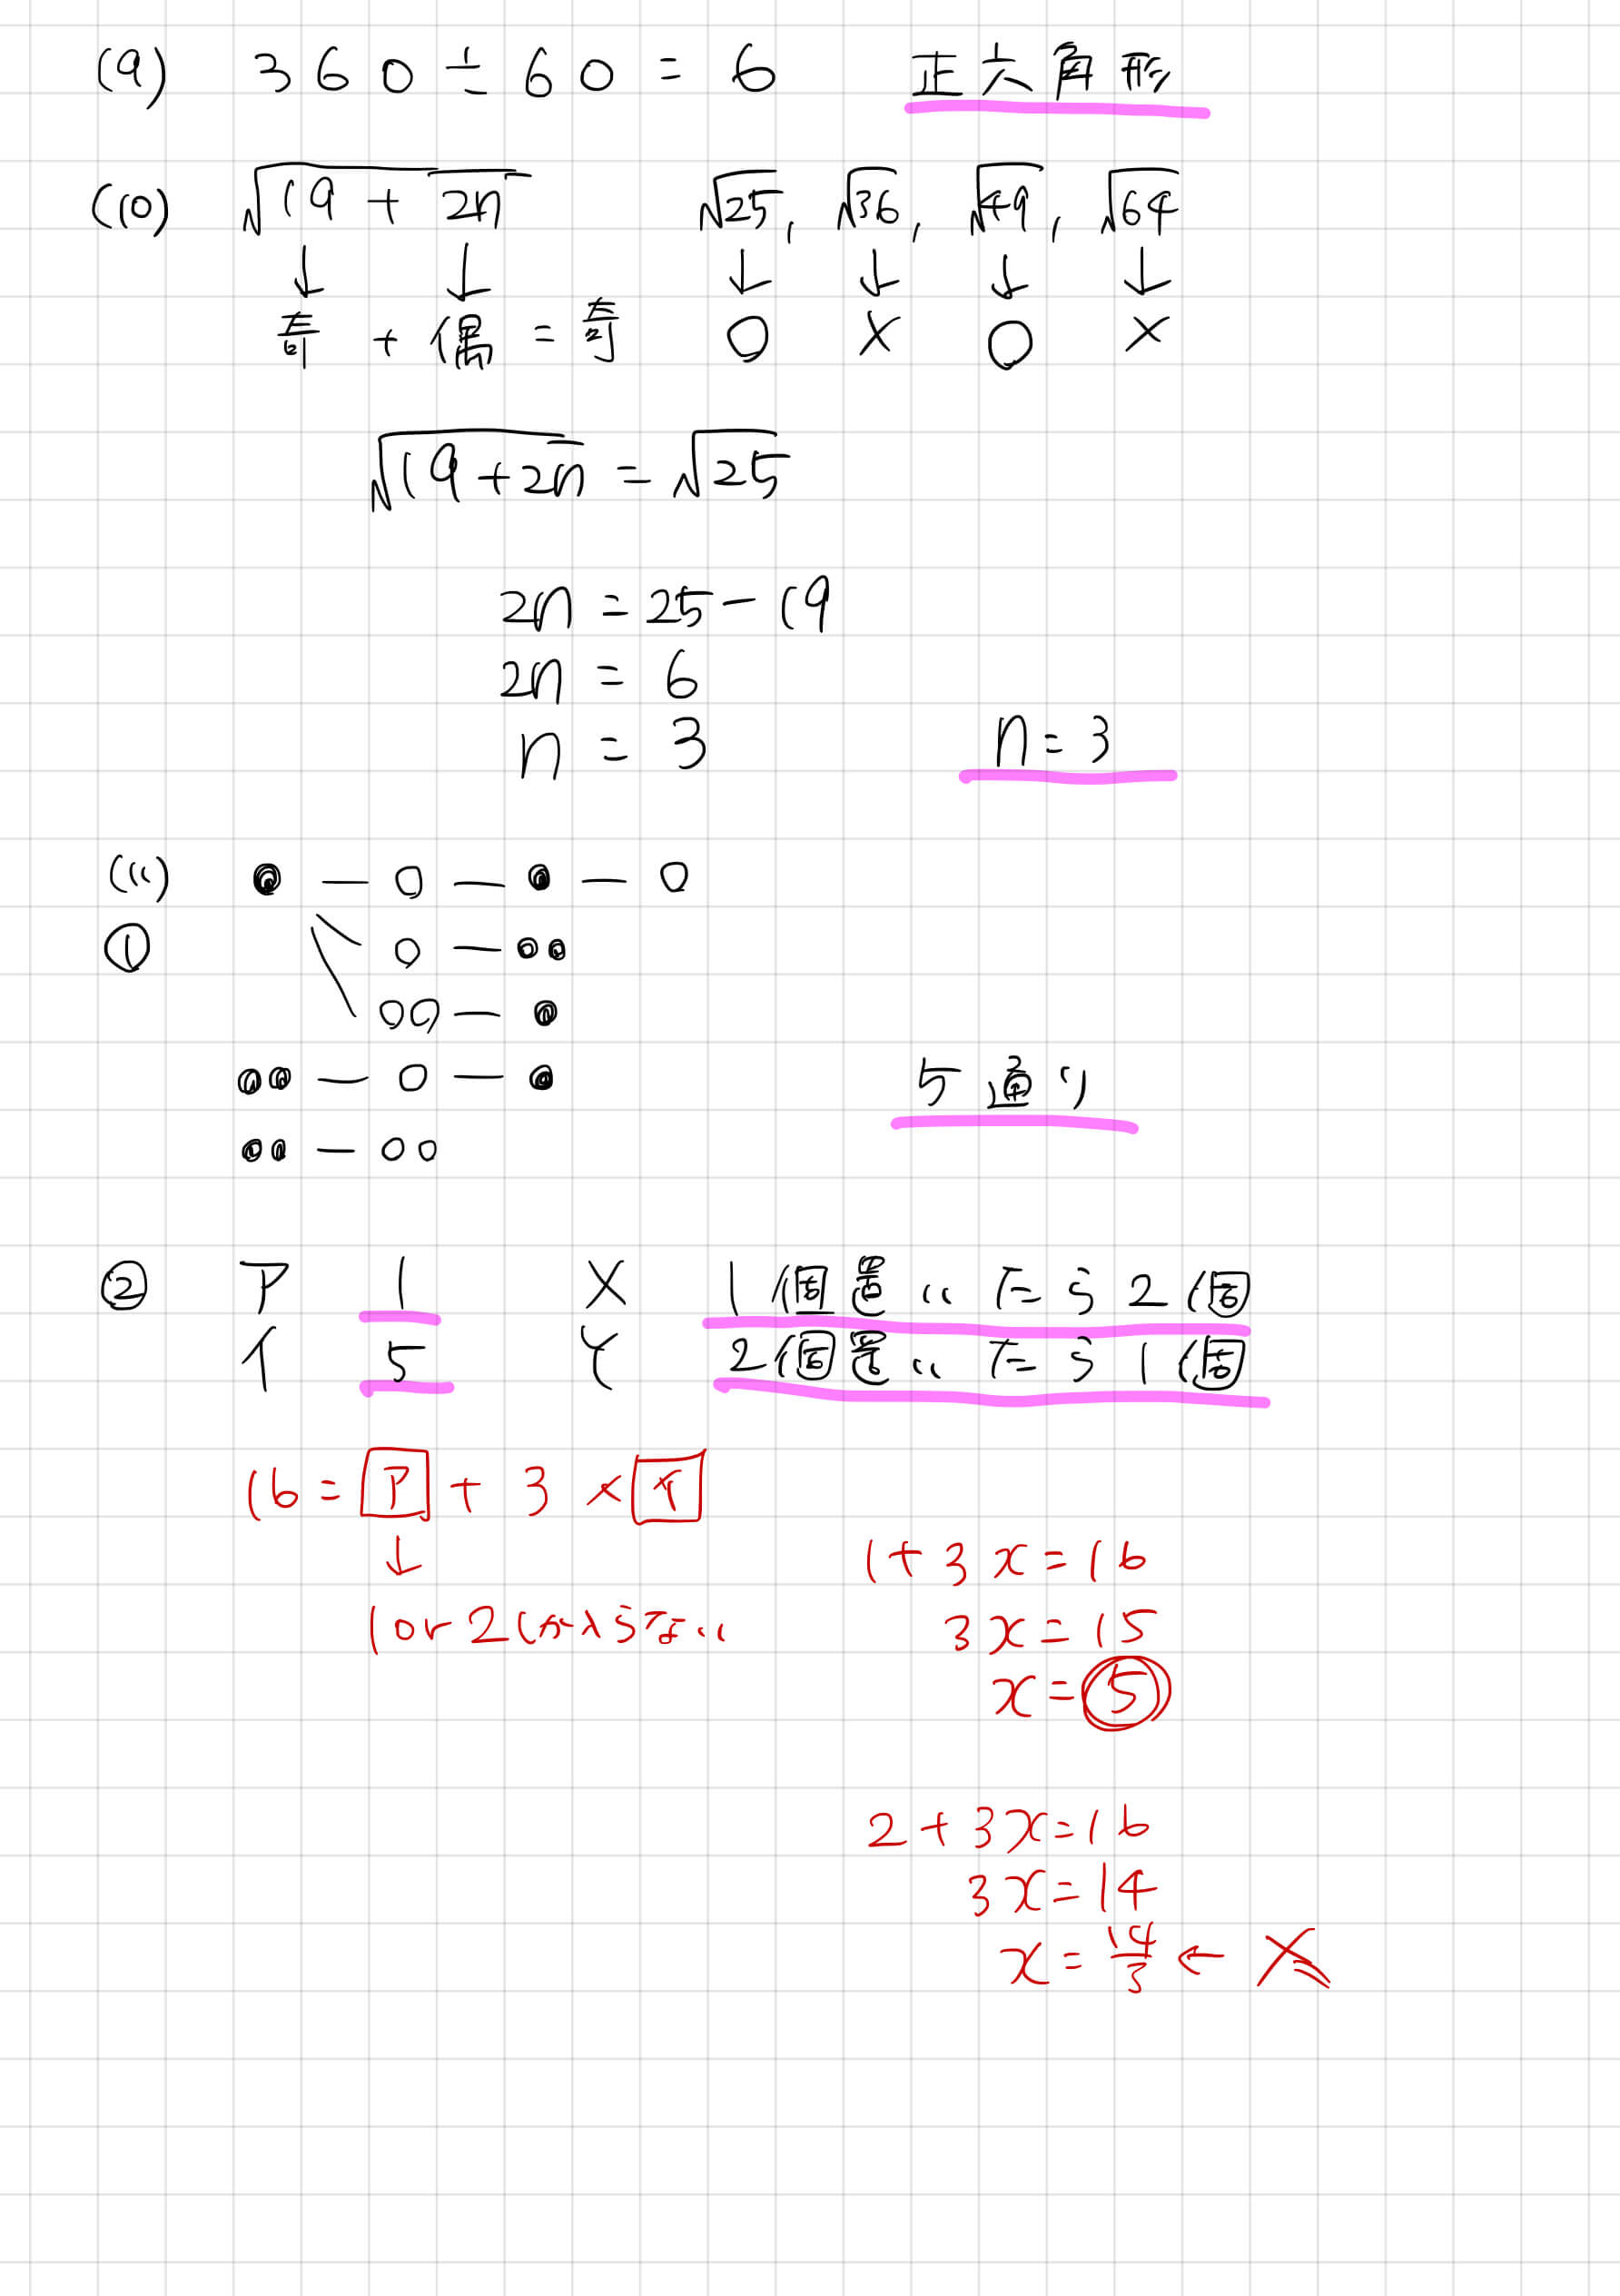 (9) 360÷60=6 正六角形
(10) √19+2n √25, √36, √49, √64
↓ ↓ ↓ ↓ ↓ ↓
奇+偶=奇 ○ × ○ ×
√19+2n=√25
2n=25-19
2n=6
n=3 n=3
(11) ●-○-●-○
① ○-●●
○○-●
●●-○-● 5通り
●●-○○
② ア 1 X 1個置いたら2個
イ 5 Y 2個置いたら1個
16=ア+3×イ
↓ 1+3x=16
1or2しか入らない 3x=15
x=5
2+3x=16
3x=14
x=14/3←×